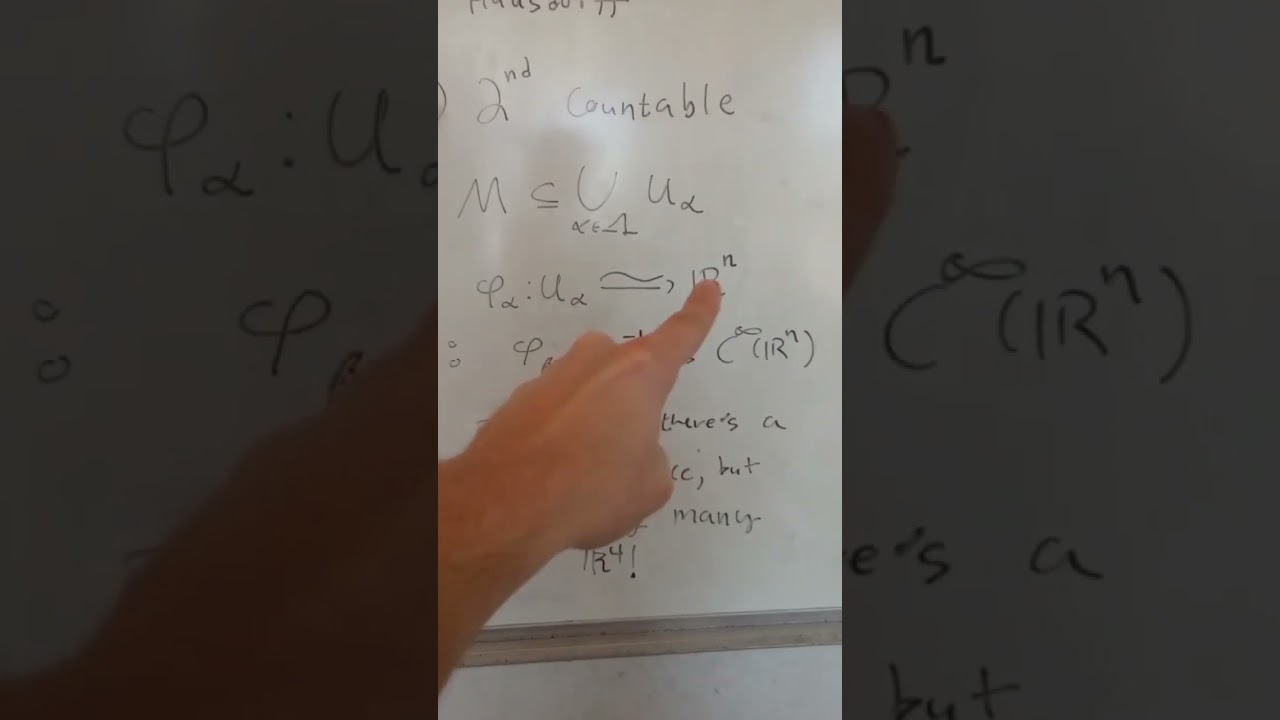 Hausdorff
2nd Countable
M ⊆ ⋃ U_α
α∈Λ
φ_α : U_α ≅→ ℝ^n
: φ_β C^∞(ℝ^n)
there's a
but
many
ℝ^4!